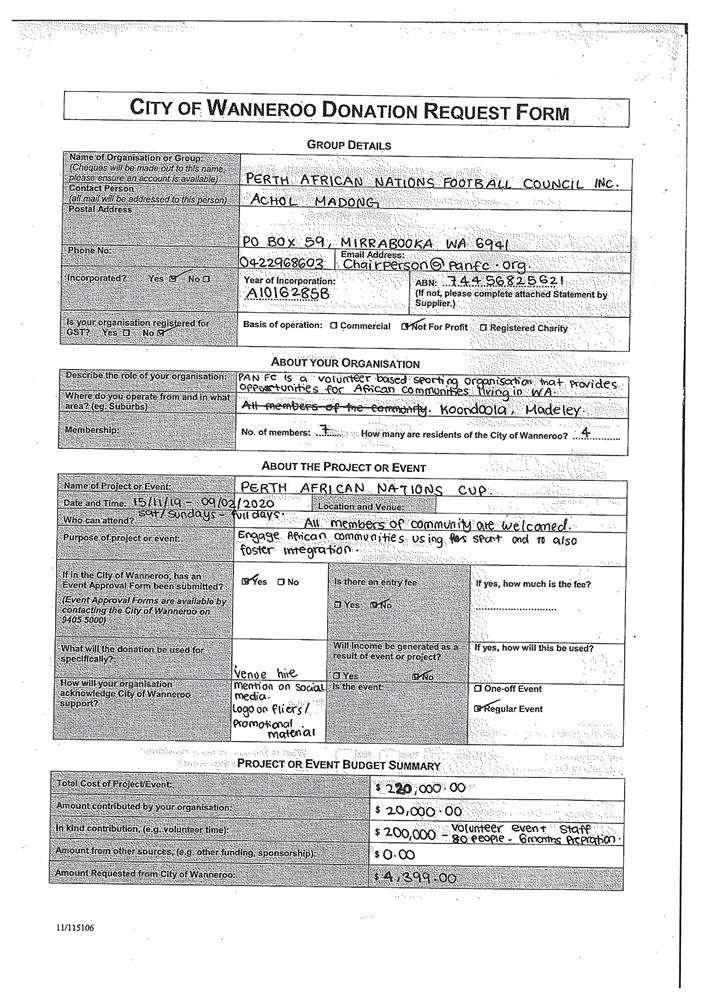 CITY OF WANNEROO DONATION REQUEST FORM
GROUP DETAILS
Name of Organisation or Group:
(Cheques will be made out to this name, please ensure an account is available)
PERTH AFRICAN NATIONS FOOTBALL COUNCIL INC.
Contact Person
(all mail will be addressed to this person)
ACHOL MADONG
Postal Address
PO BOX 59, MIRRABOOKA WA 6941
Phone No:
0422968603
Email Address:
Chairperson@panfc.org.
Incorporated? Yes ☑ No ☐
Year of Incorporation:
A1016285B
ABN: 74456825621
(If not, please complete attached Statement by Supplier.)
Is your organisation registered for GST? Yes ☐ No ☑
Basis of operation: ☐ Commercial ☑ Not For Profit ☐ Registered Charity
ABOUT YOUR ORGANISATION
Describe the role of your organisation:
PANFC is a volunteer based sporting organisation that provides
opportunities for African communities living in WA.
Where do you operate from and in what area? (eg. Suburbs)
All members of the community. Koondoola, Madeley
Membership:
No. of members: 7 How many are residents of the City of Wanneroo? 4
ABOUT THE PROJECT OR EVENT
Name of Project or Event:
PERTH AFRICAN NATIONS CUP.
Date and Time: 15/11/19 - 09/02/2020
Sat/Sundays - full days.
Location and Venue:
Who can attend?
All members of community are welcomed.
Purpose of project or event:
Engage African communities using sport and to also
foster integration.
If in the City of Wanneroo, has an Event Approval Form been submitted?
(Event Approval Forms are available by contacting the City of Wanneroo on 9405 5000)
☑ Yes ☐ No
Is there an entry fee
☐ Yes ☑ No
If yes, how much is the fee?
What will the donation be used for specifically?:
Venue hire
Will income be generated as a result of event or project?
☐ Yes ☑ No
If yes, how will this be used?
How will your organisation acknowledge City of Wanneroo support?
Mention on social
media.
Logo on fliers/
Promotional
material
Is the event:
☐ One-off Event
☑ Regular Event
PROJECT OR EVENT BUDGET SUMMARY
Total Cost of Project/Event:
$ 220,000.00
Amount contributed by your organisation:
$ 20,000.00
In kind contribution, (e.g. volunteer time):
$ 200,000 - Volunteer event staff
80 people - 6months preparation.
Amount from other sources, (e.g. other funding, sponsorship):
$ 0.00
Amount Requested from City of Wanneroo:
$ 4,399.00
11/115106